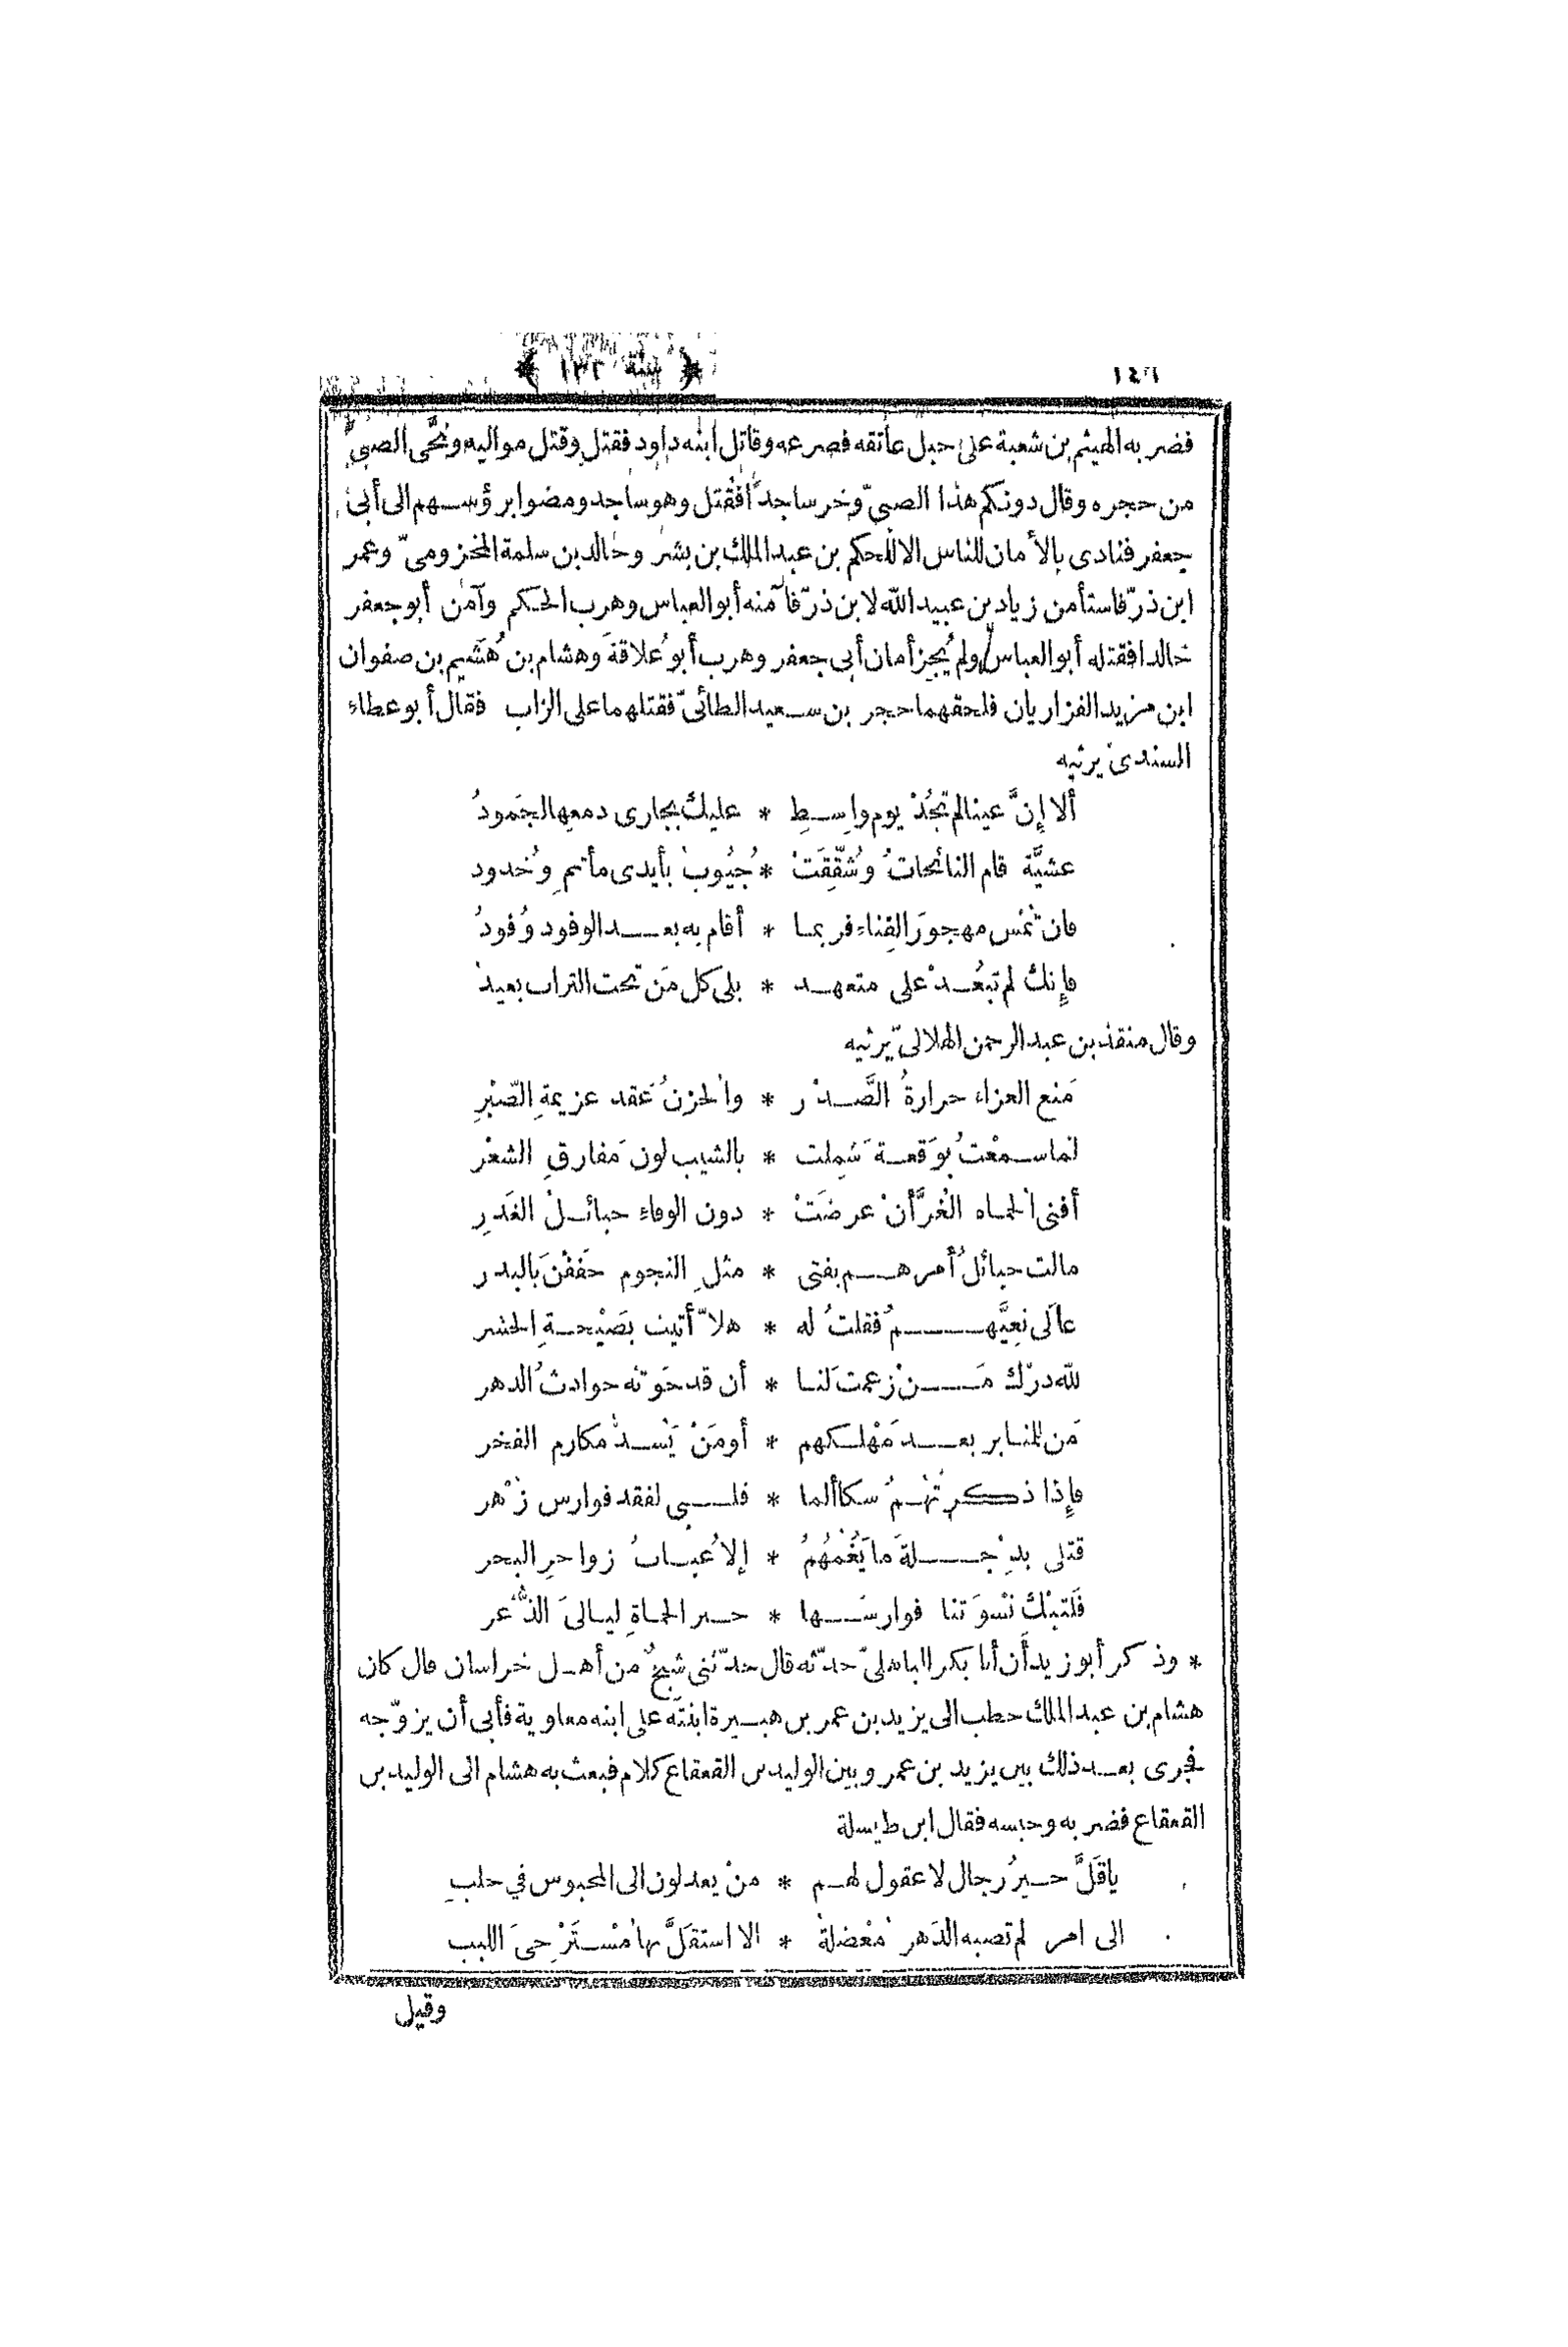 ١٤٦ ﴿ سنة ١٣٢ ﴾
فضربه الهيثم بن شعبة على حبل عاتقه فصرعه وقاتل ابنه داود فقتل وقتل مواليه ونُحّى الصبىُّ
من حجره وقال دونكم هذا الصبىّ وخر ساجداً فقُتل وهو ساجد ومضوا برؤسهم الى أبى
جعفر فنادى بالأمان للناس الا للحكم بن عبد الملك بن بشر وخالد بن سلمة المخزومىّ وعمر
ابن ذرّ فاستأمن زياد بن عبيد الله لابن ذرّ فآمنه أبو العباس وهرب الحكم وآمن أبو جعفر
خالدا فقتله أبو العباس ولم يُجِز أمان أبى جعفر وهرب أبو عُلاقةَ وهشام بن هُشَيم بن صفوان
ابن مزيد الفزاريان فلحقهما حجر بن سعيد الطائىّ فقتلهما على الزاب فقال أبو عطاء
السندى يرثيه
ألا إنَّ عينا لم تَجُدْ يوم واسِطِ * عليك بجارى دمعها لجَمودُ
عشيَّة قام النائحاتُ وشُقِّقَتْ * جُيُوب بأيدى مأتمٍ وخُدود
فان تُمْسِ مهجورَ الفِناء فربما * أقام به بعد الوفود وُفودُ
فإنك لم تبعُدْ على متعهد * بلى كل مَن تحت التراب بعيد
وقال منقذ بن عبد الرحمن الهلالىّ يرثيه
مَنع العزاء حرارةُ الصَّدْر * والحزنُ عَقد عزيمةِ الصّبْرِ
لما سمعْتُ بوَقعة شَمِلت * بالشيب لون مَفارقِ الشعْر
أفنى الحماه الغُرَّ أنْ عرضَتْ * دون الوفاءِ حبائلُ الغَدرِ
مالت حبائلُ أمرهم بفتى * مثلِ النجوم حَفَفْنَ بالبدر
عالَى نَعِيَّهمُ فقلتُ له * هلاّ أتيت بصَيْحةِ الحشر
لله درّك مَنْ زعمت لَنا * أن قد حَوَته حوادثُ الدهر
مَن للمنابر بعد مَهْلكهم * أومَنْ يَسدُّ مكارم الفخر
فإذا ذكرتُهُمُ سكا ألما * قلبى لفقد فوارس زُهر
قتلى بدِجْلةَ ما يَغُمّهُمُ * إلا عُبابُ زواخرِ البحر
فَلتبْك نسْوَتنا فوارسَها * خير الحماةِ ليالىَ الذُّعر
* وذكر أبو زيد أن أبا بكر الباهلىّ حدّثه قال حدّثنى شيخٌ من أهل خراسان قال كان
هشام بن عبد الملك خطب الى يزيد بن عمر بن هبيرة ابنتَه على ابنه معاوية فأبى أن يزوّجه
فجرى بعد ذلك بين يزيد بن عمر وبين الوليد بن القعقاع كلام فبعث به هشام الى الوليد بن
القعقاع فضربه وحبسه فقال ابن طيسلة
يا قَلَّ خيرُ رجال لا عقول لهم * منْ يعدلون الى المحبوس في حلبِ
الى امرء لم تصبه الدَهر مُعْضلة * الا استقلَّ بها مُسْتَرْخىَ اللبب
وقيل